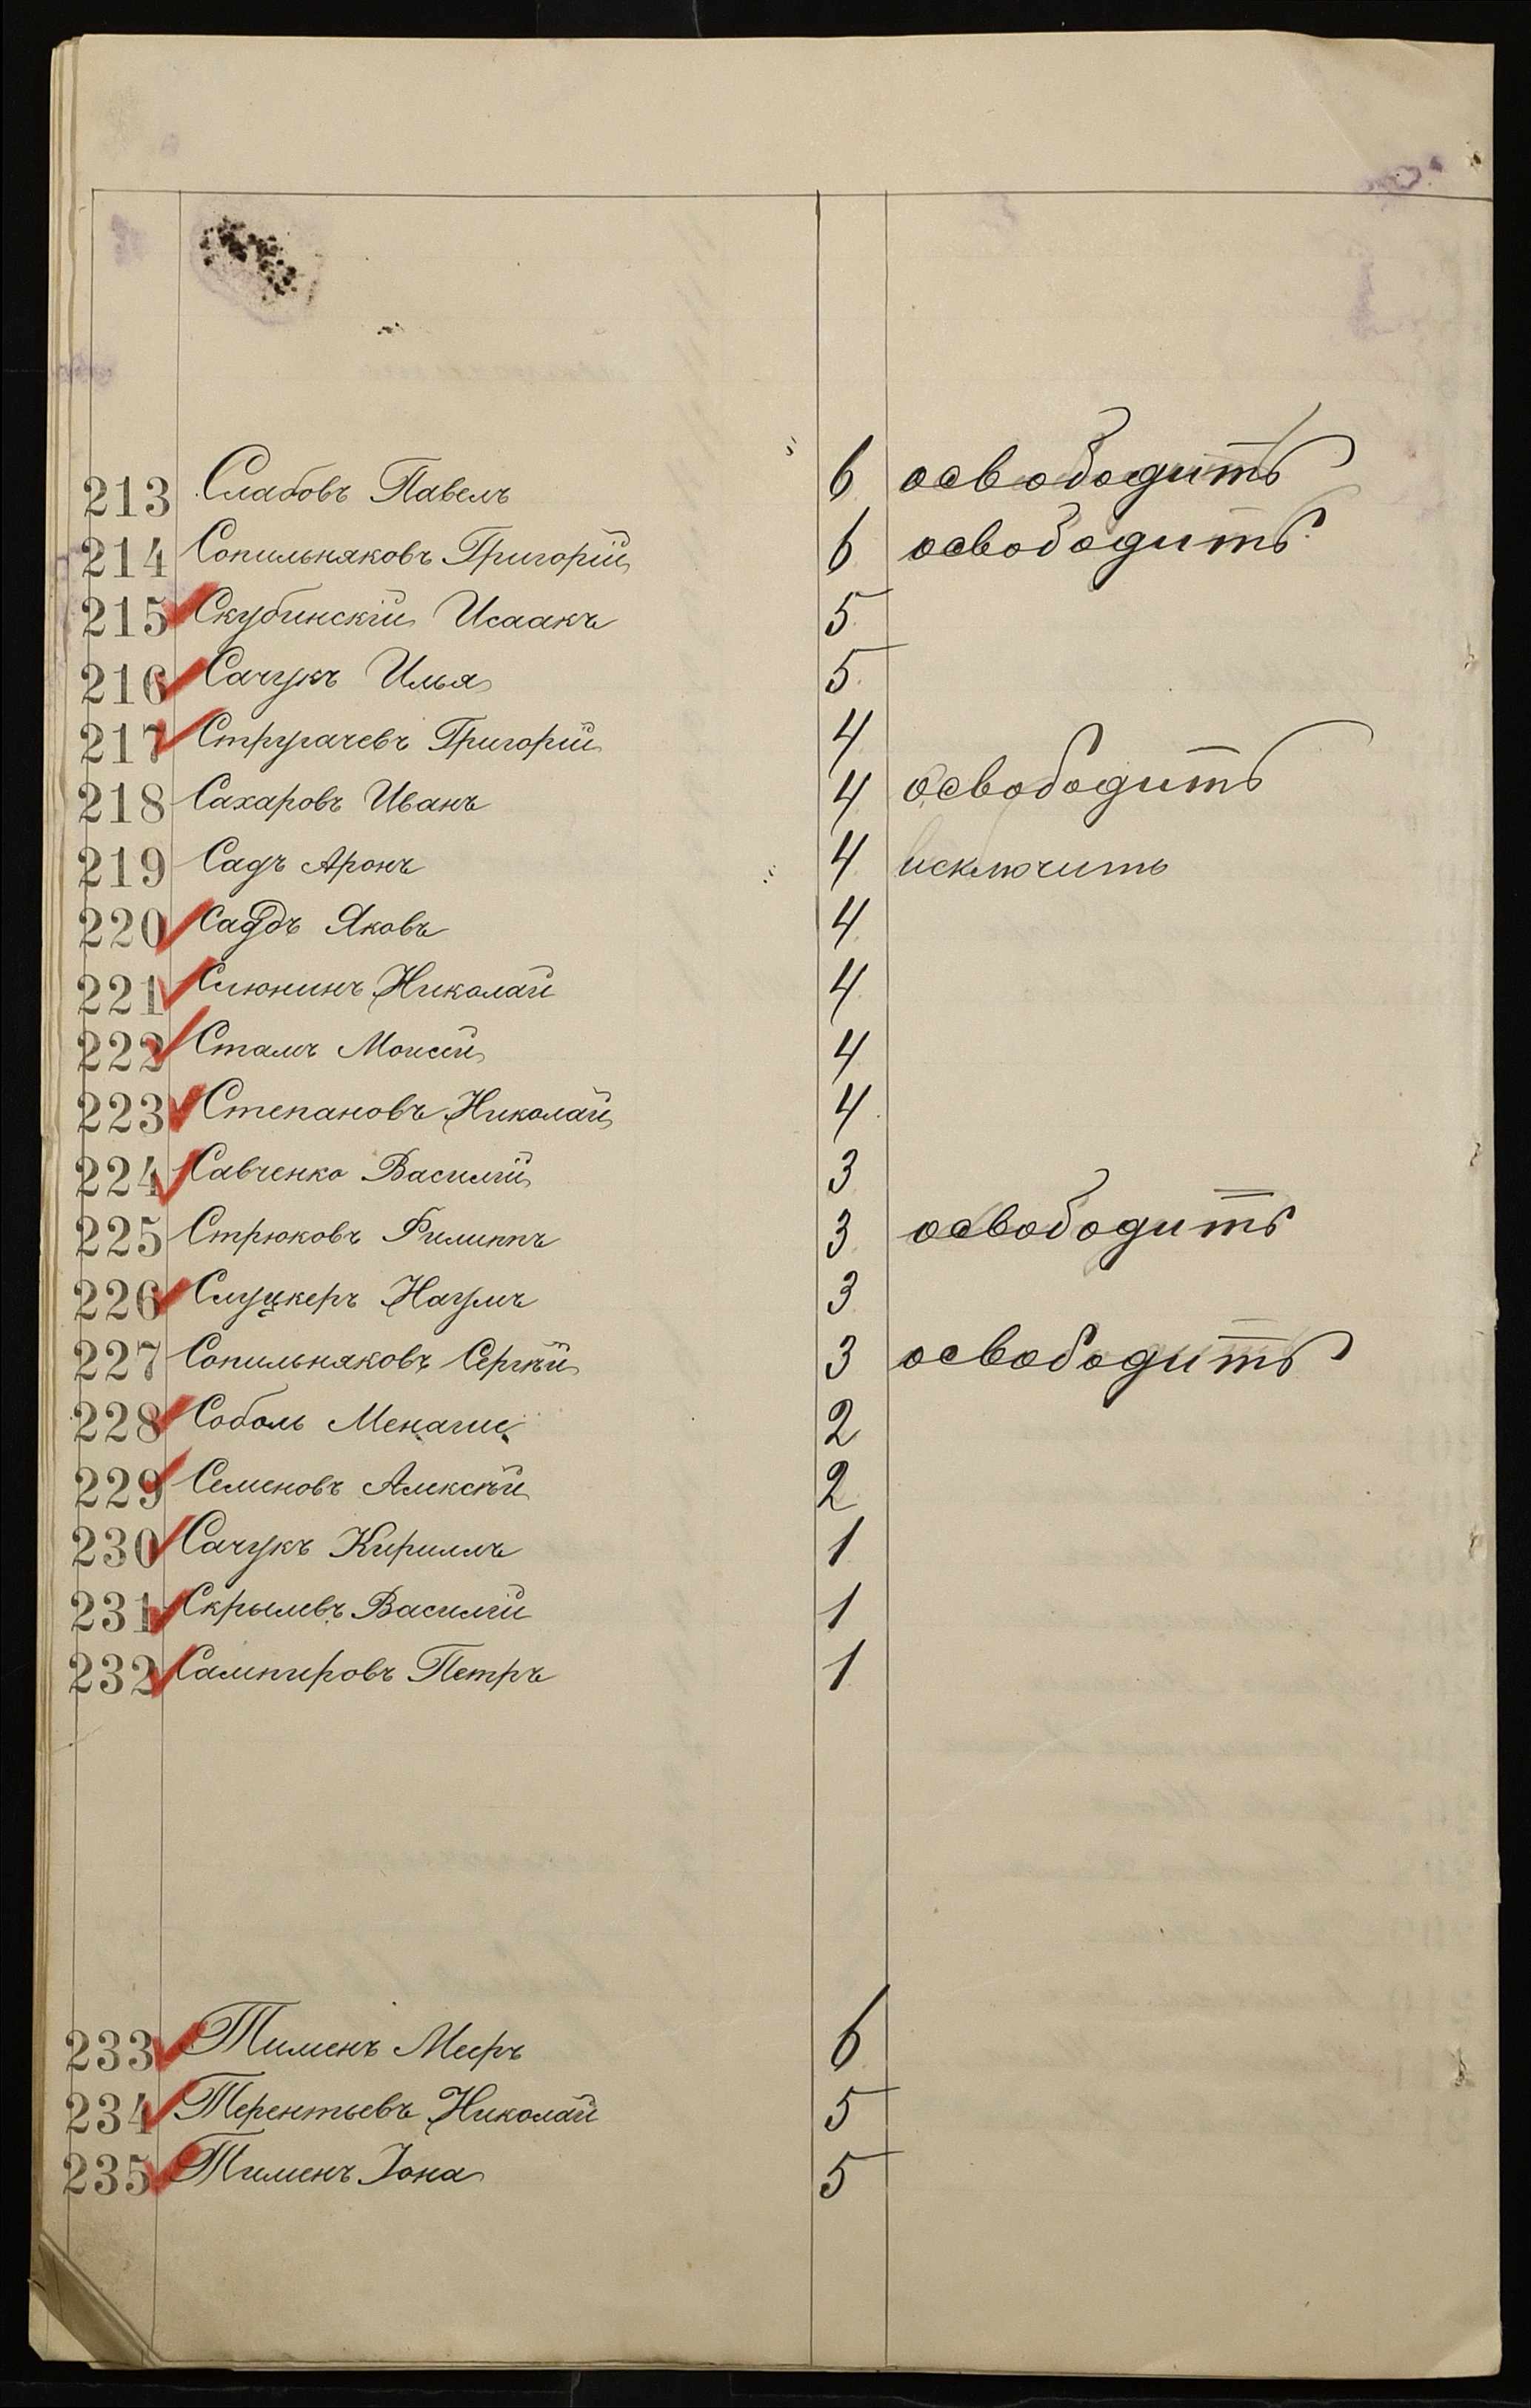 213 Слабовъ Павелъ 6 освободить
214 Сопильняковъ Григорій 6 освободить
215 Скубинскій Исаакъ 5
216 Сачукъ Илья 5
217 Стругачевъ Григорій 4
218 Сахаровъ Иванъ 4 освободить
219 Садъ Аронъ 4 исключить
220 Садъ Яковъ 4
221 Слюнинъ Николай 4
222 Сталь Моисей 4
223 Степановъ Николай 4
224 Савченко Василій 3
225 Стрюковъ Филиппъ 3 освободить
226 Слуцкеръ Наумъ 3
227 Сопильняковъ Сергѣй 3 освободить
228 Соболь 2
229 Семеновъ Алексѣй 2
230 Сачукъ Кириллъ 1
231 Скрылевъ Василій 1
232 Сампировъ Петръ 1
233 Тименъ Мееръ 6
234 Терентьевъ Николай 5
235 Тименъ Іона 5